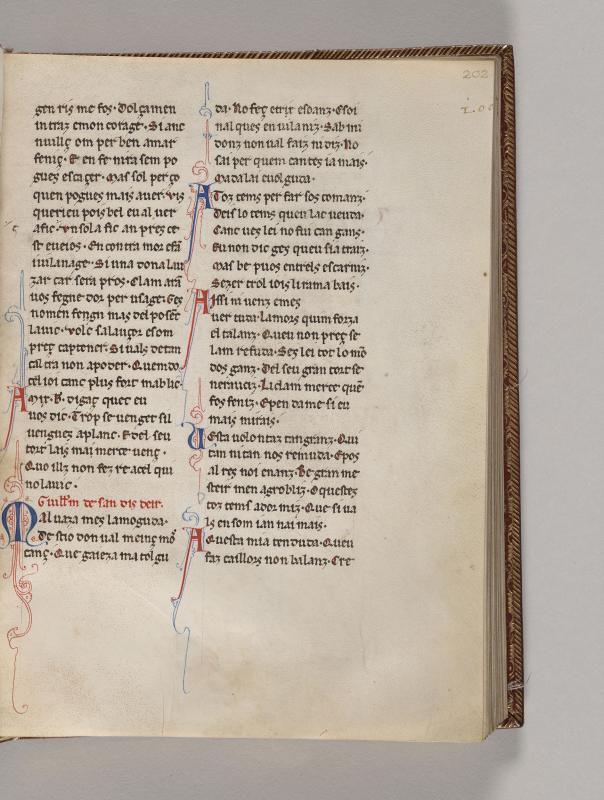 202
gen ris me fos · Dolçamen
in traz emon corage · Si anc
nuillç om per ben amar
feniç · E en fe nira sem po
gues escaçer · Mas sol per ço
quen pogues mais auer · vis
querieu pois bel eu al uer
afic · vn sola fic an preç ce
st eueios · En contra mor
iuilanage · Si una dona
zar car sera pros · Clam
uos fegne dor per usage · Ges
nomen fengu mas del
lauic · volc salauçor esom
preç captener · Si uals detan
cal tra non apoder · Quem do
cel ioi canc plus fort mablic
Amic · B · digaç quer eu
uos dic · Trop se uenget sil
uengueç aplanc · E del seu
tort lais mai merce uenç ·
Quo illz non fez re acel qui
nolauic ·
Guillm de san dis deir ·
Mal uaza mes lamoguda ·
De stio don ual meinç mō
canç · Que gaieza ma tolgu
da · No feç etrix esdanz · Esoi
nal ques en iulaniz · Sab mi
donz non ual faiz ni diz · No
sai per quem cantes ia mais ·
Mada lai euolguda ·
A Toz tems per far sos comanz ·
Deis lo tems quen lac ueuda ·
Canc ues lei no fui can gans ·
Eu non dic ges queu sia traiz ·
Mas be puos entrels escarniz ·
Sezer trol iois li rima bais ·
Aissi ni uenz emes
uertuda · Lamors quim forza
el talanz · Queu non preç se
lam refuda · Ses lei tot lo mō
dos ganz · Del seu gran tort se
neraucz · Li clam merce quē
fos feniz · E pen da me si eu
mais mirais ·
Uesta uolontaz tan granz · Qui
tan ni tan nos remuda · Epos
al res noi enanz · Be gran me
steir men agrobliz · O questes
toz tems ador miz · Que si ua
is en som ian nai mais ·
Aquesta mia tenduda · Queu
faz caillors non balanz · Cre